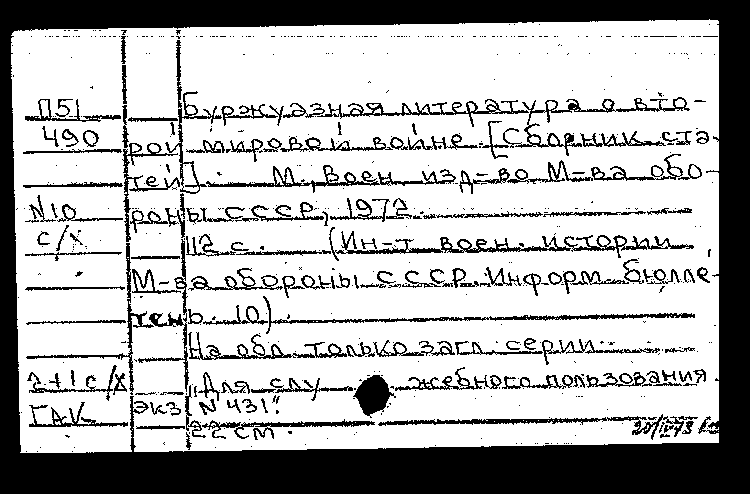 П51 Буржуазная литература о вто-
490 рой мировой войне. [Сборник ста-
тей]. М., Воен. изд-во М-ва обо-
N10 роны СССР, 1972.
с/х 112 с. (Ин-т воен. истории
М-ва обороны СССР. Информ. бюлле-
тень. 10).
На обл. только загл. серии.
2+1 с/х „Для служебного пользования.
ГАК экз. N 431".
22 см.
20/IV73